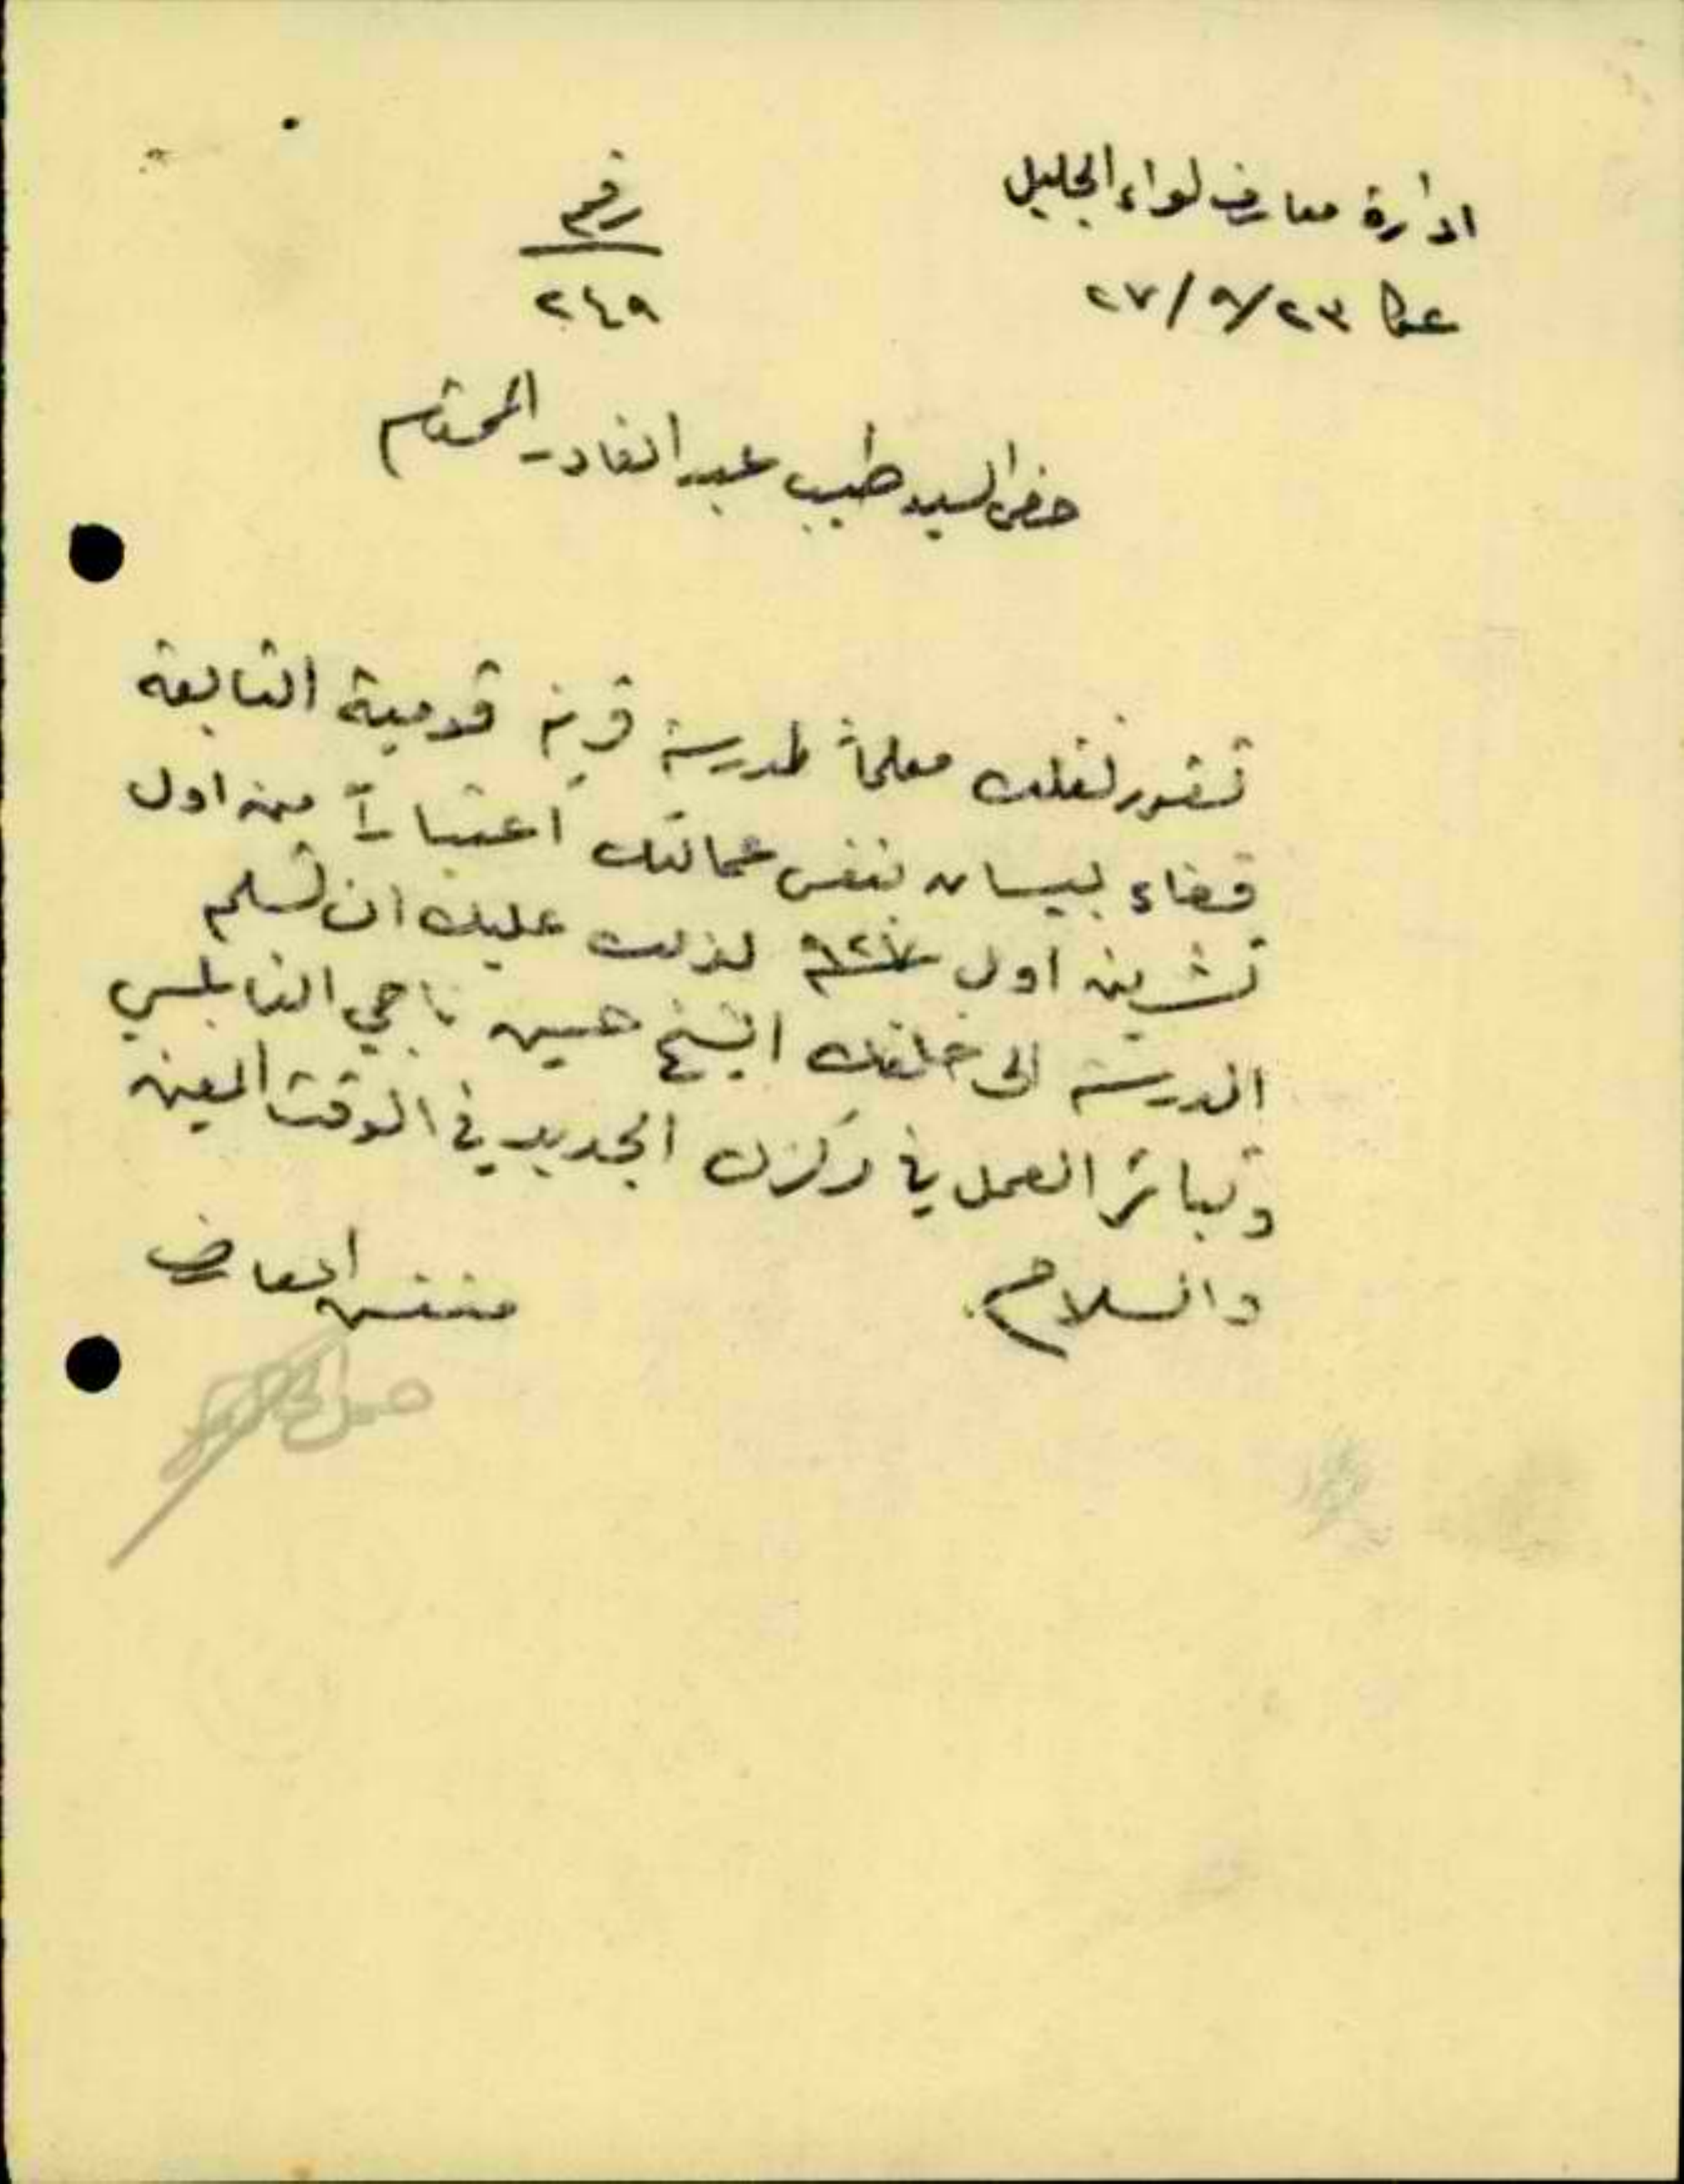 ادارة معارف لواء الجليل
عكا ٢٣/٩/٢٧
رقم
٢٤٩
حضرة السيد طبيب عبد القادر المحترم
تقرر نقلك معلماً لمدرسة قرية قومية التابعة
قضاء بيسان بنفس عمالتك اعتباراً من اول
تشرين اول ٩٢٧ لذلك عليك ان تسلم
المدرسة الى خلفك الشيخ حسين ناجي النابلسي
وتباشر العمل في مركزك الجديد في الوقت المعين
والسلام.
مفتش المعارف